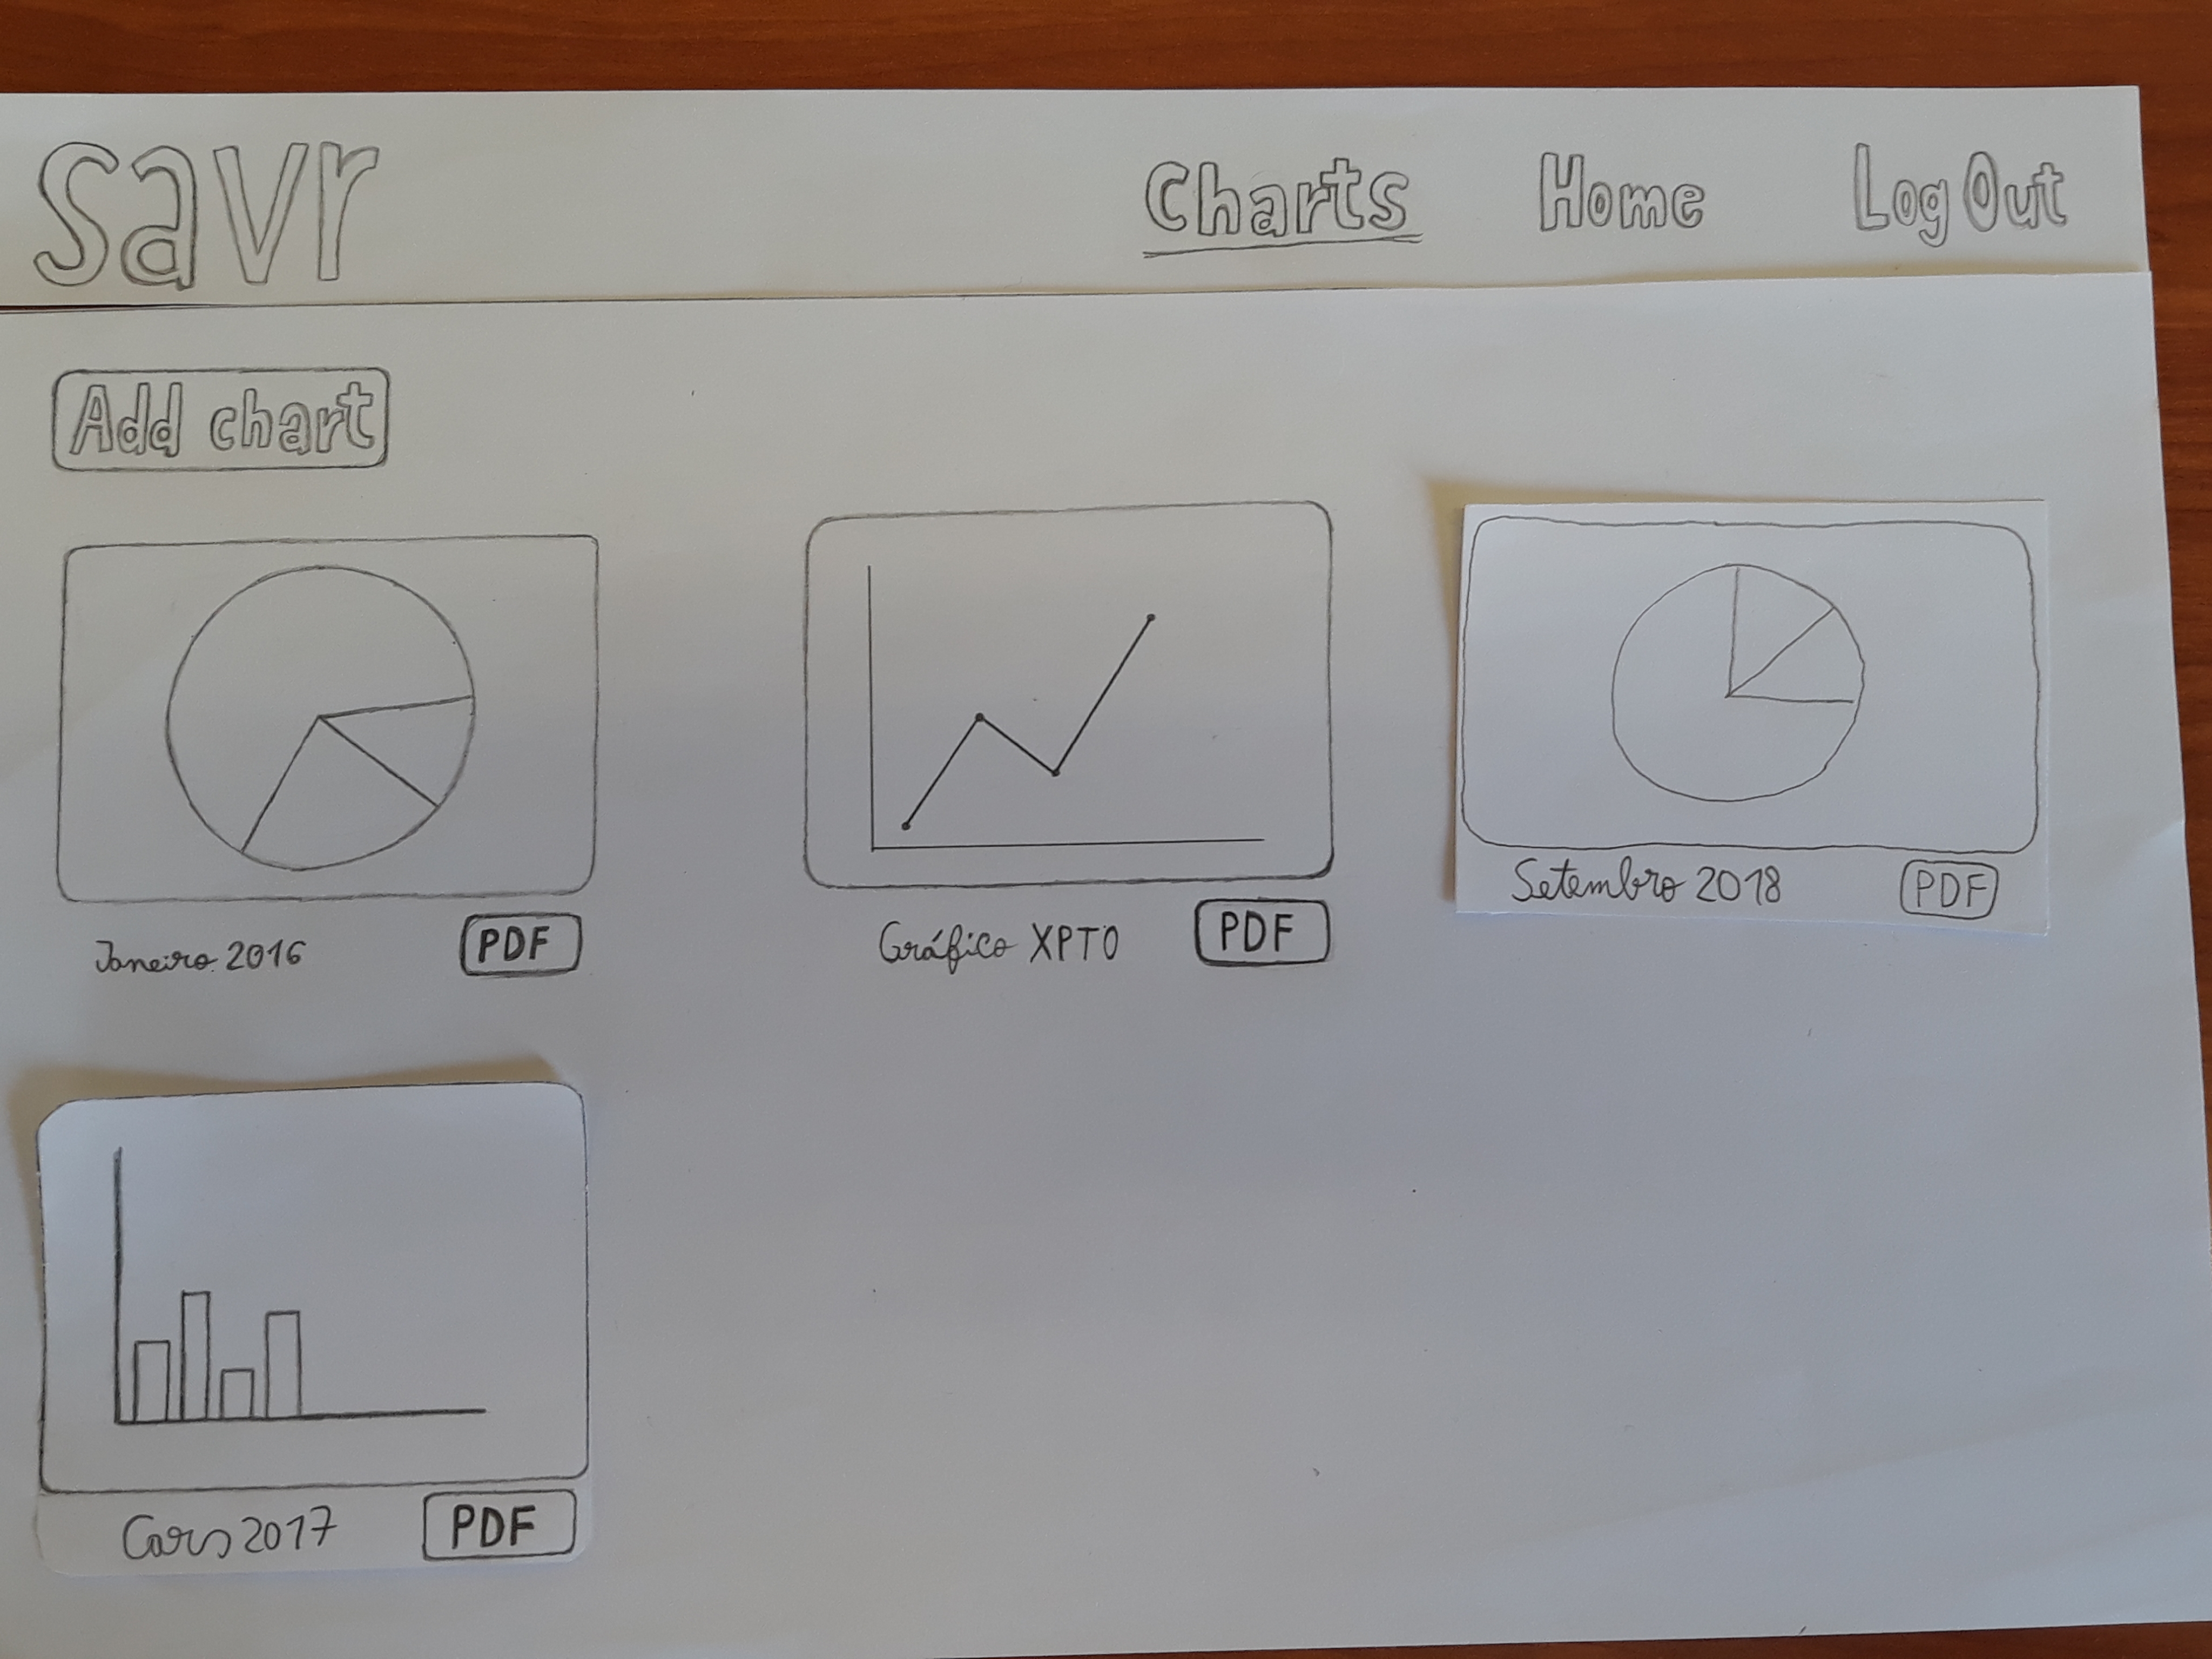 savr
Charts Home Log Out
Add chart
Janeiro 2016 PDF
Gráfico XPTO PDF
Setembro 2018 PDF
Cars 2017 PDF